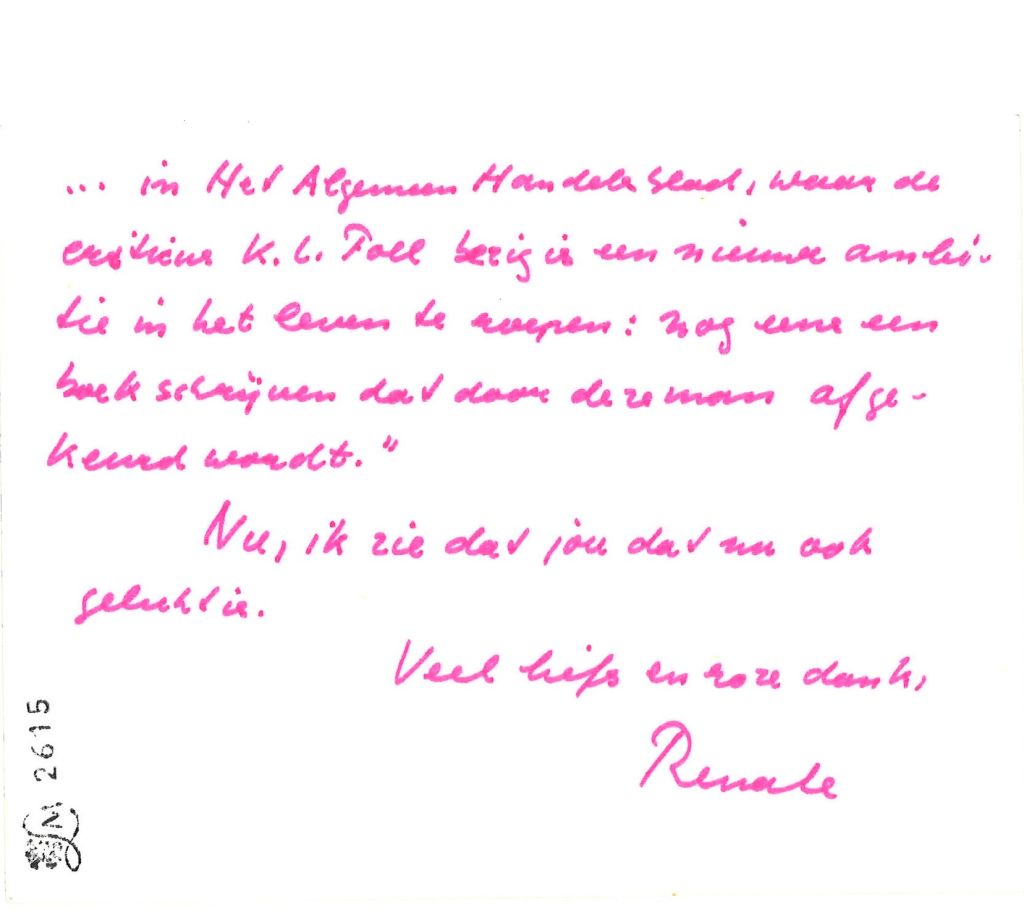 ... in Het Algemeen Handelsblad, waar de
criticus K.L. Poll bezig is een nieuwe ambi-
tie in het leven te roepen: nog eens een
boek schrijven dat door deze man afge-
keurd wordt."
Nu, ik zie dat jou dat nu ook
gelukt is.
Veel liefs en roze dank,
Renate
LM 2615